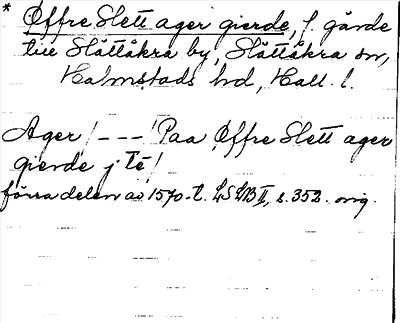 * Øffre Slett ager gierde, f. gärde
till Slättåkra by, Slättåkra sn,
Halmstads hd, Hall. l.
Ager /---/ Paa Øffre Slett ager
gierde j tē /
förra delen av 1570-t. LSLB II, s. 352. orig.